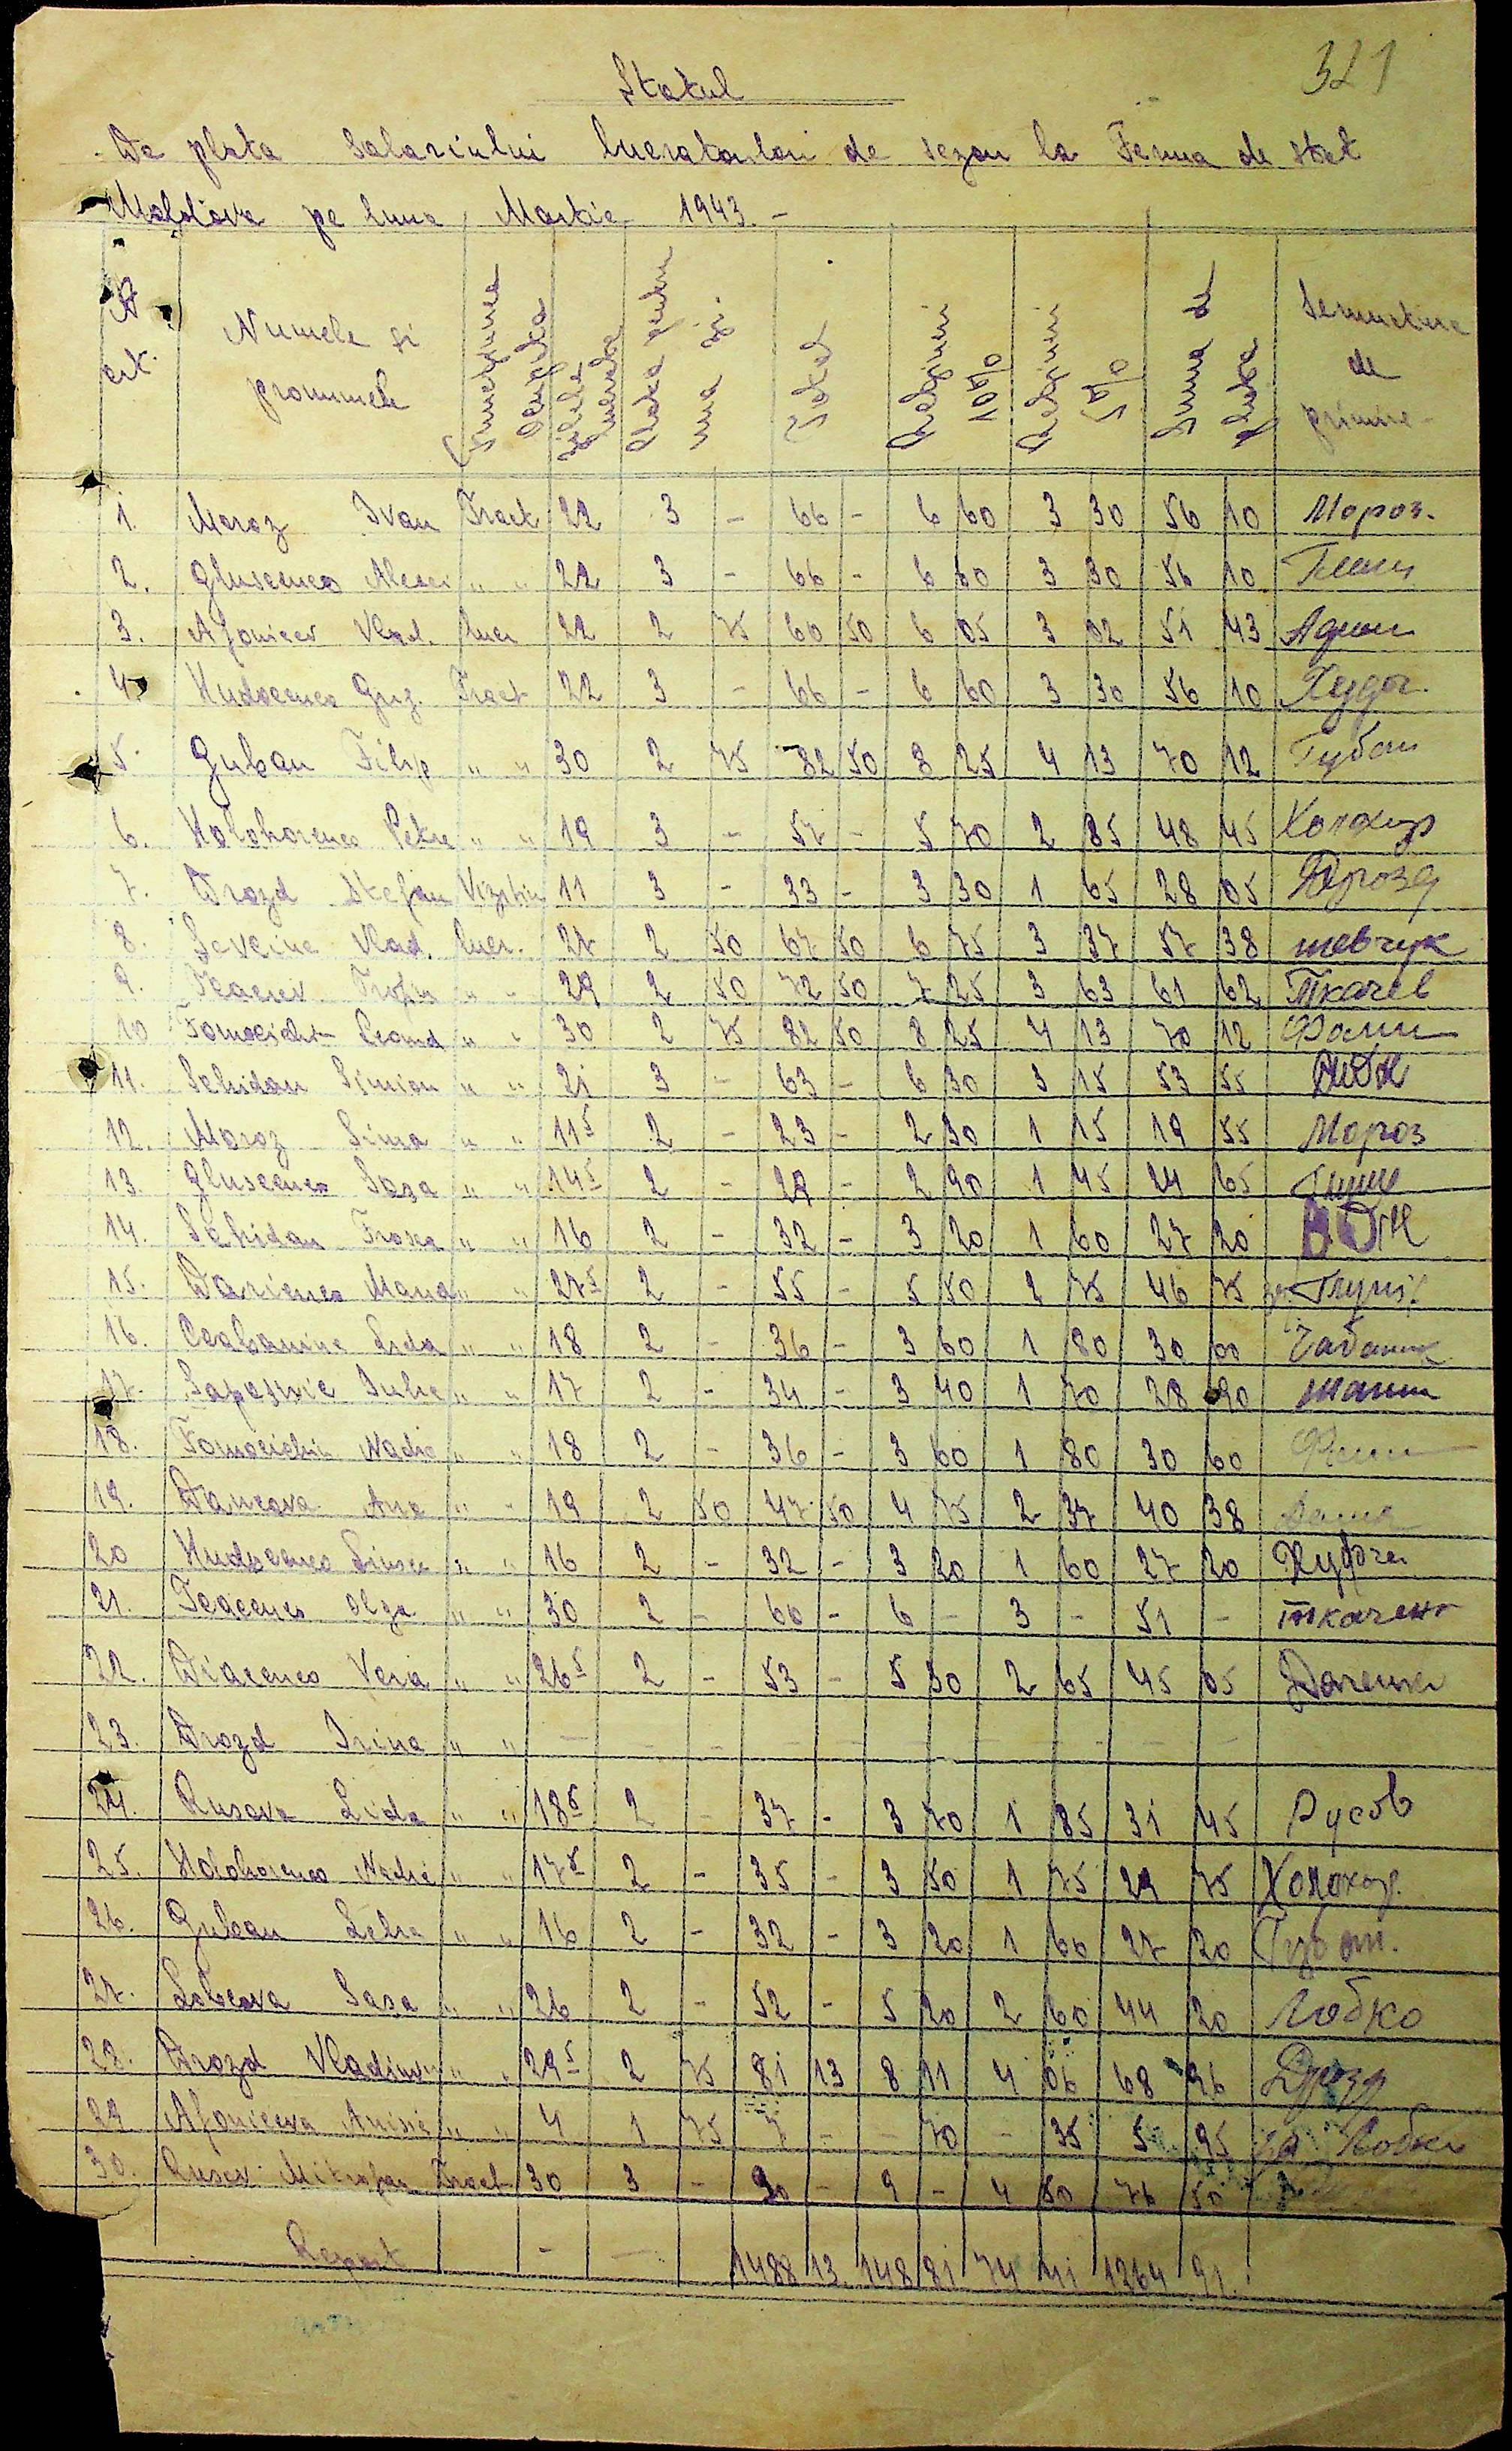 321
Statul
De plata Salariului lucratorilor de sezon la Ferma de stat
Moldova pe luna Martie 1943. -
№ crt. Numele si pronumele Functiunea Zilele lucrate Plata pentru una zi Total Retineri 10% Retineri 5% Suma de plata Semnatura de primire -
1 Moroz Ivan Tract 22 3 - 66 - 6 60 3 30 56 10 Мороз.
2. Gluscenco Alexei " " 22 3 - 66 - 6 60 3 30 56 10
3. Afoniccev Vlad. lucr 22 2 75 60 50 6 05 3 02 51 43
4 Hudocenco Grig. Tract 22 3 - 66 - 6 60 3 30 56 10
5. Guban Filip " " 30 2 75 82 50 8 25 4 13 70 12 Губан
6. Holohorenco Petre " " 19 3 - 57 - 5 70 2 85 48 45 Холохор
7. Drozd Stefan Vizitiu 11 3 - 33 - 3 30 1 65 28 05 Дрозд
8. Vlad. lucr. 27 2 50 67 50 6 75 3 37 57 38 шевчук
9. Tcacev Trofim " " 29 2 50 72 50 7 25 3 63 61 62 Ткачев
10 Leonid " " 30 2 75 82 50 8 25 4 13 70 12 Фоми
11. Schidan Simion " " 21 3 - 63 - 6 30 3 15 53 55
12. Moroz Sima " " 11 5 2 - 23 - 2 30 1 15 19 55 Мороз
13. Gluscenco Sasa " " 14 5 2 - 29 - 2 90 1 45 24 65
14. Schidan Frosea " " 16 2 - 32 - 3 20 1 60 27 20
15. Maria " " 27 5 2 - 55 - 5 50 2 75 46 75
16. Lida " " 18 2 - 36 - 3 60 1 80 30 60 Чабаник
17. Iulia " " 17 2 - 34 - 3 40 1 70 28 90
18. Nadia " " 18 2 - 36 - 3 60 1 80 30 60
19. Dancova Ana " " 19 2 50 47 50 4 75 2 37 40 38
20 Hudocenco " " 16 2 - 32 - 3 20 1 60 27 20
21. Tcacenco Olga " " 30 2 - 60 - 6 - 3 - 51 - ткаченко
22. Diacenco Vera " " 26 5 2 - 53 - 5 30 2 65 45 05
23. Drozd Irina " " - - - - - - - - - - -
24. Rusova Lida " " 18 5 2 - 37 - 3 70 1 85 31 45 Русов
25. Holohorenco Nadia " " 17 5 2 - 35 - 3 50 1 75 29 75 Холохор.
26. Guban " " 16 2 - 32 - 3 20 1 60 27 20 Губан.
27. Lobcova Sasa " " 26 2 - 52 - 5 20 2 60 44 20 Лобко
28. Drozd Vladimir " " 29 5 2 75 81 13 8 11 4 06 68 96 Дрозд
29 Afonieeva Anisie " " 4 1 75 7 - - 70 - 35 5 95 Лобко
30. Rusov Mitrofan Tract 30 3 - 90 - 9 - 4 50 76 50
Report - - 1488 13 148 81 74 41 1264 91